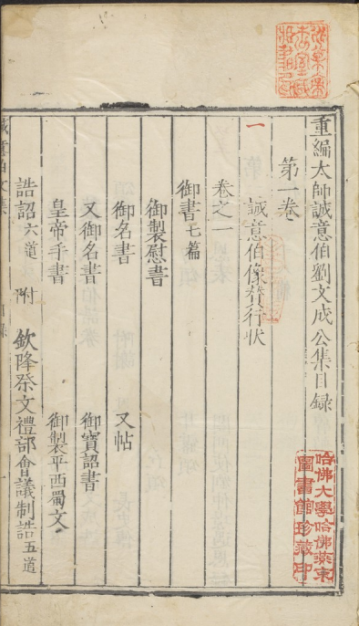 重編太師誠意伯劉文成公集目録
第一卷
誠意伯像 行狀
卷之一
御書七篇
御製慰書
御名書 又帖
又御名書 御寳詔書
皇帝手書 御製平西蜀文
誥詔六道 附 欽降祭文禮部會議制誥五道
哈佛大學哈佛燕京
圖書館珍藏印